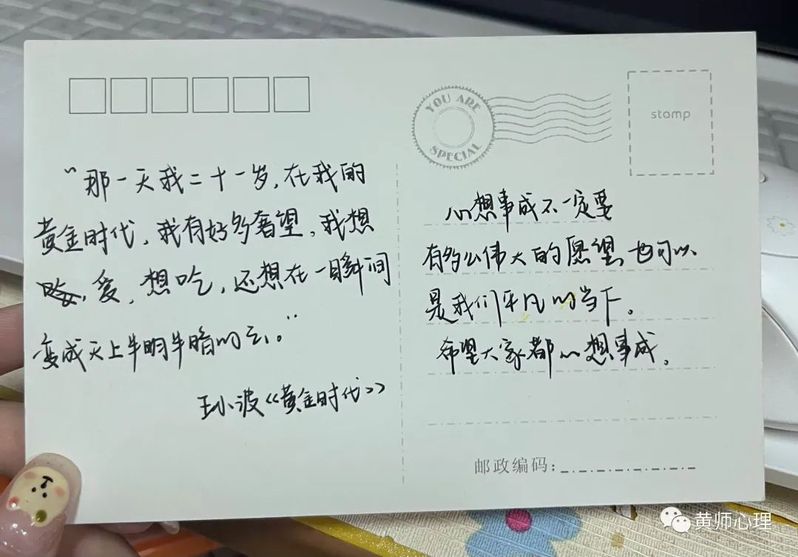 YOU ARE
SPECIAL
stamp
“那一天我二十一岁,在我的
黄金时代,我有好多奢望。我想
爱,想吃,还想在一瞬间
变成天上半明半暗的云。”
王小波《黄金时代》
心想事成不一定要
有多么伟大的愿望,也可以
是我们平凡的当下。
希望大家都心想事成。
邮政编码:
黄师心理